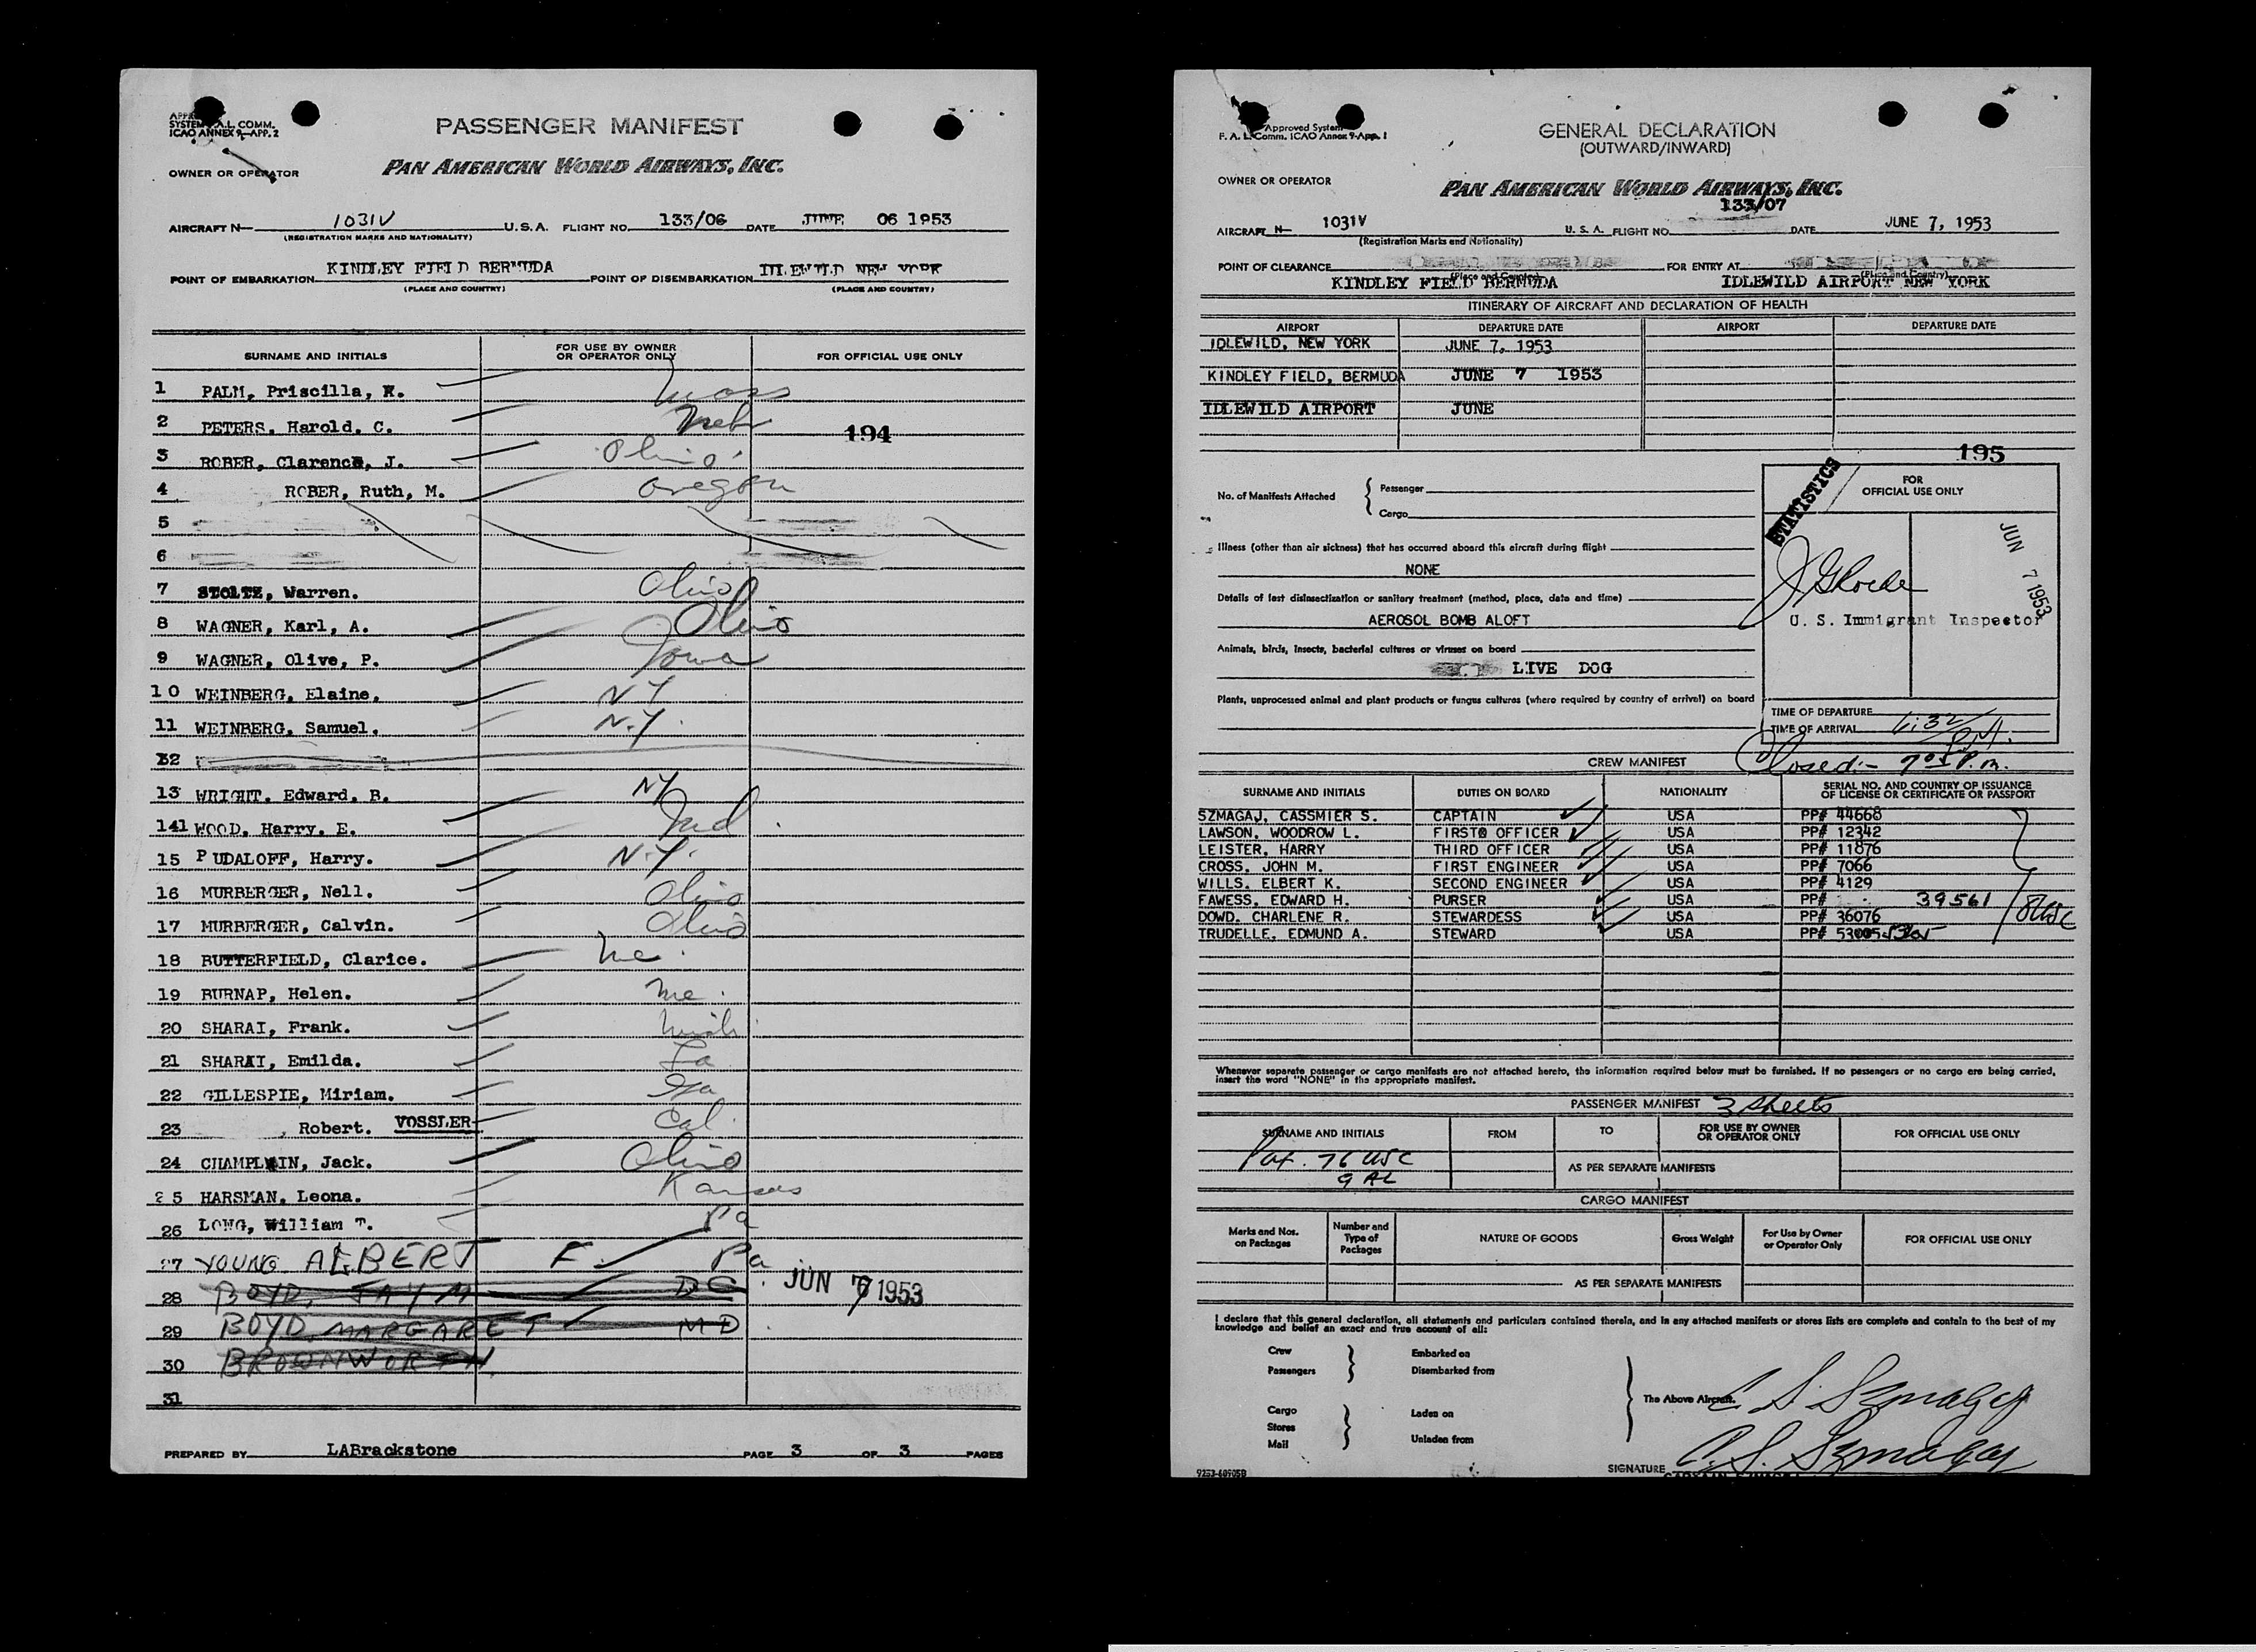 APP
SYSTEM F.A.L. COMM.
ICAO ANNEX 9—APP. 2
PASSENGER MANIFEST
OWNER OR OPERATOR
PAN AMERICAN WORLD AIRWAYS, INC.
AIRCRAFT N— 1031V U.S.A. FLIGHT NO. 133/06 DATE JUNE 06 1953
(REGISTRATION MARKS AND NATIONALITY)
POINT OF EMBARKATION KINDLEY FIELD BERMUDA POINT OF DISEMBARKATION IDLEWILD NEW YORK
(PLACE AND COUNTRY) (PLACE AND COUNTRY)
SURNAME AND INITIALS FOR USE BY OWNER OR OPERATOR ONLY FOR OFFICIAL USE ONLY
1 PALM, Priscilla, W. Mass
2 PETERS, Harold. C. Nebr
194
3 ROBER, Clarence, J. Ohio
4 ROBER, Ruth, M. Oregon
5
6
7 STOLTZ, Warren. Ohio
8 WAGNER, Karl, A. Ohio
9 WAGNER, Olive, P. Iowa
10 WEINBERG, Elaine. N Y
11 WEINBERG, Samuel. N.Y.
12
13 WRIGHT, Edward, B. NY
14 WOOD, Harry. E. Md
15 PUDALOFF, Harry. N.Y.
16 MURBERGER, Nell. Ohio
17 MURBERGER, Calvin. Ohio
18 BUTTERFIELD, Clarice. Me
19 BURNAP, Helen. Me.
20 SHARAI, Frank. Mich
21 SHARAI, Emilda. La
22 GILLESPIE, Miriam. Ga
23 , Robert. VOSSLER Cal.
24 CHAMPLAIN, Jack. Ohio
25 HARSMAN, Leona. Kansas
26 LONG, William T. Pa
27 YOUNG ALBERT F. Pa
28 BOYD, JAY M DC
JUN 7 1953
29 BOYD, MARGARET MD
30 BROWNWORTH
31
PREPARED BY LABrackstone PAGE 3 OF 3 PAGES
Approved System
F. A. L. Comm. ICAO Annex 9-App. 1
GENERAL DECLARATION
(OUTWARD/INWARD)
OWNER OR OPERATOR
PAN AMERICAN WORLD AIRWAYS, INC.
133/07
AIRCRAFT N— 1031V U. S. A. FLIGHT NO. DATE JUNE 7, 1953
(Registration Marks and Nationality)
POINT OF CLEARANCE FOR ENTRY AT
(Place and Country) (Place and Country)
KINDLEY FIELD BERMUDA IDLEWILD AIRPORT NEW YORK
ITINERARY OF AIRCRAFT AND DECLARATION OF HEALTH
AIRPORT DEPARTURE DATE AIRPORT DEPARTURE DATE
IDLEWILD, NEW YORK JUNE 7, 1953
KINDLEY FIELD, BERMUDA JUNE 7 1953
IDLEWILD AIRPORT JUNE
195
STATISTICS
FOR OFFICIAL USE ONLY
No. of Manifests Attached Passenger
Cargo
JUN 7 1953
Illness (other than air sickness) that has occurred aboard this aircraft during flight
NONE
Details of last disinsectization or sanitary treatment (method, place, date and time)
AEROSOL BOMB ALOFT
U. S. Immigrant Inspector
Animals, birds, insects, bacterial cultures or viruses on board
LIVE DOG
Plants, unprocessed animal and plant products or fungus cultures (where required by country of arrival) on board
TIME OF DEPARTURE
TIME OF ARRIVAL 6:32 P.M.
Closed:- 7 05 P.m.
CREW MANIFEST
SURNAME AND INITIALS DUTIES ON BOARD NATIONALITY SERIAL NO. AND COUNTRY OF ISSUANCE OF LICENSE OR CERTIFICATE OR PASSPORT
SZMAGAJ, CASSMIER S. CAPTAIN USA PP# 44668
LAWSON, WOODROW L. FIRST OFFICER USA PP# 12342
LEISTER, HARRY THIRD OFFICER USA PP# 11876
CROSS, JOHN M. FIRST ENGINEER USA PP# 7066
WILLS, ELBERT K. SECOND ENGINEER USA PP# 4129
FAWESS, EDWARD H. PURSER USA PP# 39561
DOWD, CHARLENE R. STEWARDESS USA PP# 36076
8 USC
TRUDELLE, EDMUND A. STEWARD USA PP# 53005
Whenever separate passenger or cargo manifests are not attached hereto, the information required below must be furnished. If no passengers or no cargo are being carried, insert the word "NONE" in the appropriate manifest.
PASSENGER MANIFEST 3 sheets
SURNAME AND INITIALS FROM TO FOR USE BY OWNER OR OPERATOR ONLY FOR OFFICIAL USE ONLY
Pax. 76 USC
9 AL
AS PER SEPARATE MANIFESTS
CARGO MANIFEST
Marks and Nos. on Packages Number and Type of Packages NATURE OF GOODS Gross Weight For Use by Owner or Operator Only FOR OFFICIAL USE ONLY
AS PER SEPARATE MANIFESTS
I declare that this general declaration, all statements and particulars contained therein, and in any attached manifests or stores lists are complete and contain to the best of my
knowledge and belief an exact and true account of all:
Crew Embarked on
Passengers Disembarked from
The Above Aircraft. C S Szmagaj
Cargo Laden on
Stores
Mail Unladen from
SIGNATURE C. S. Szmagaj